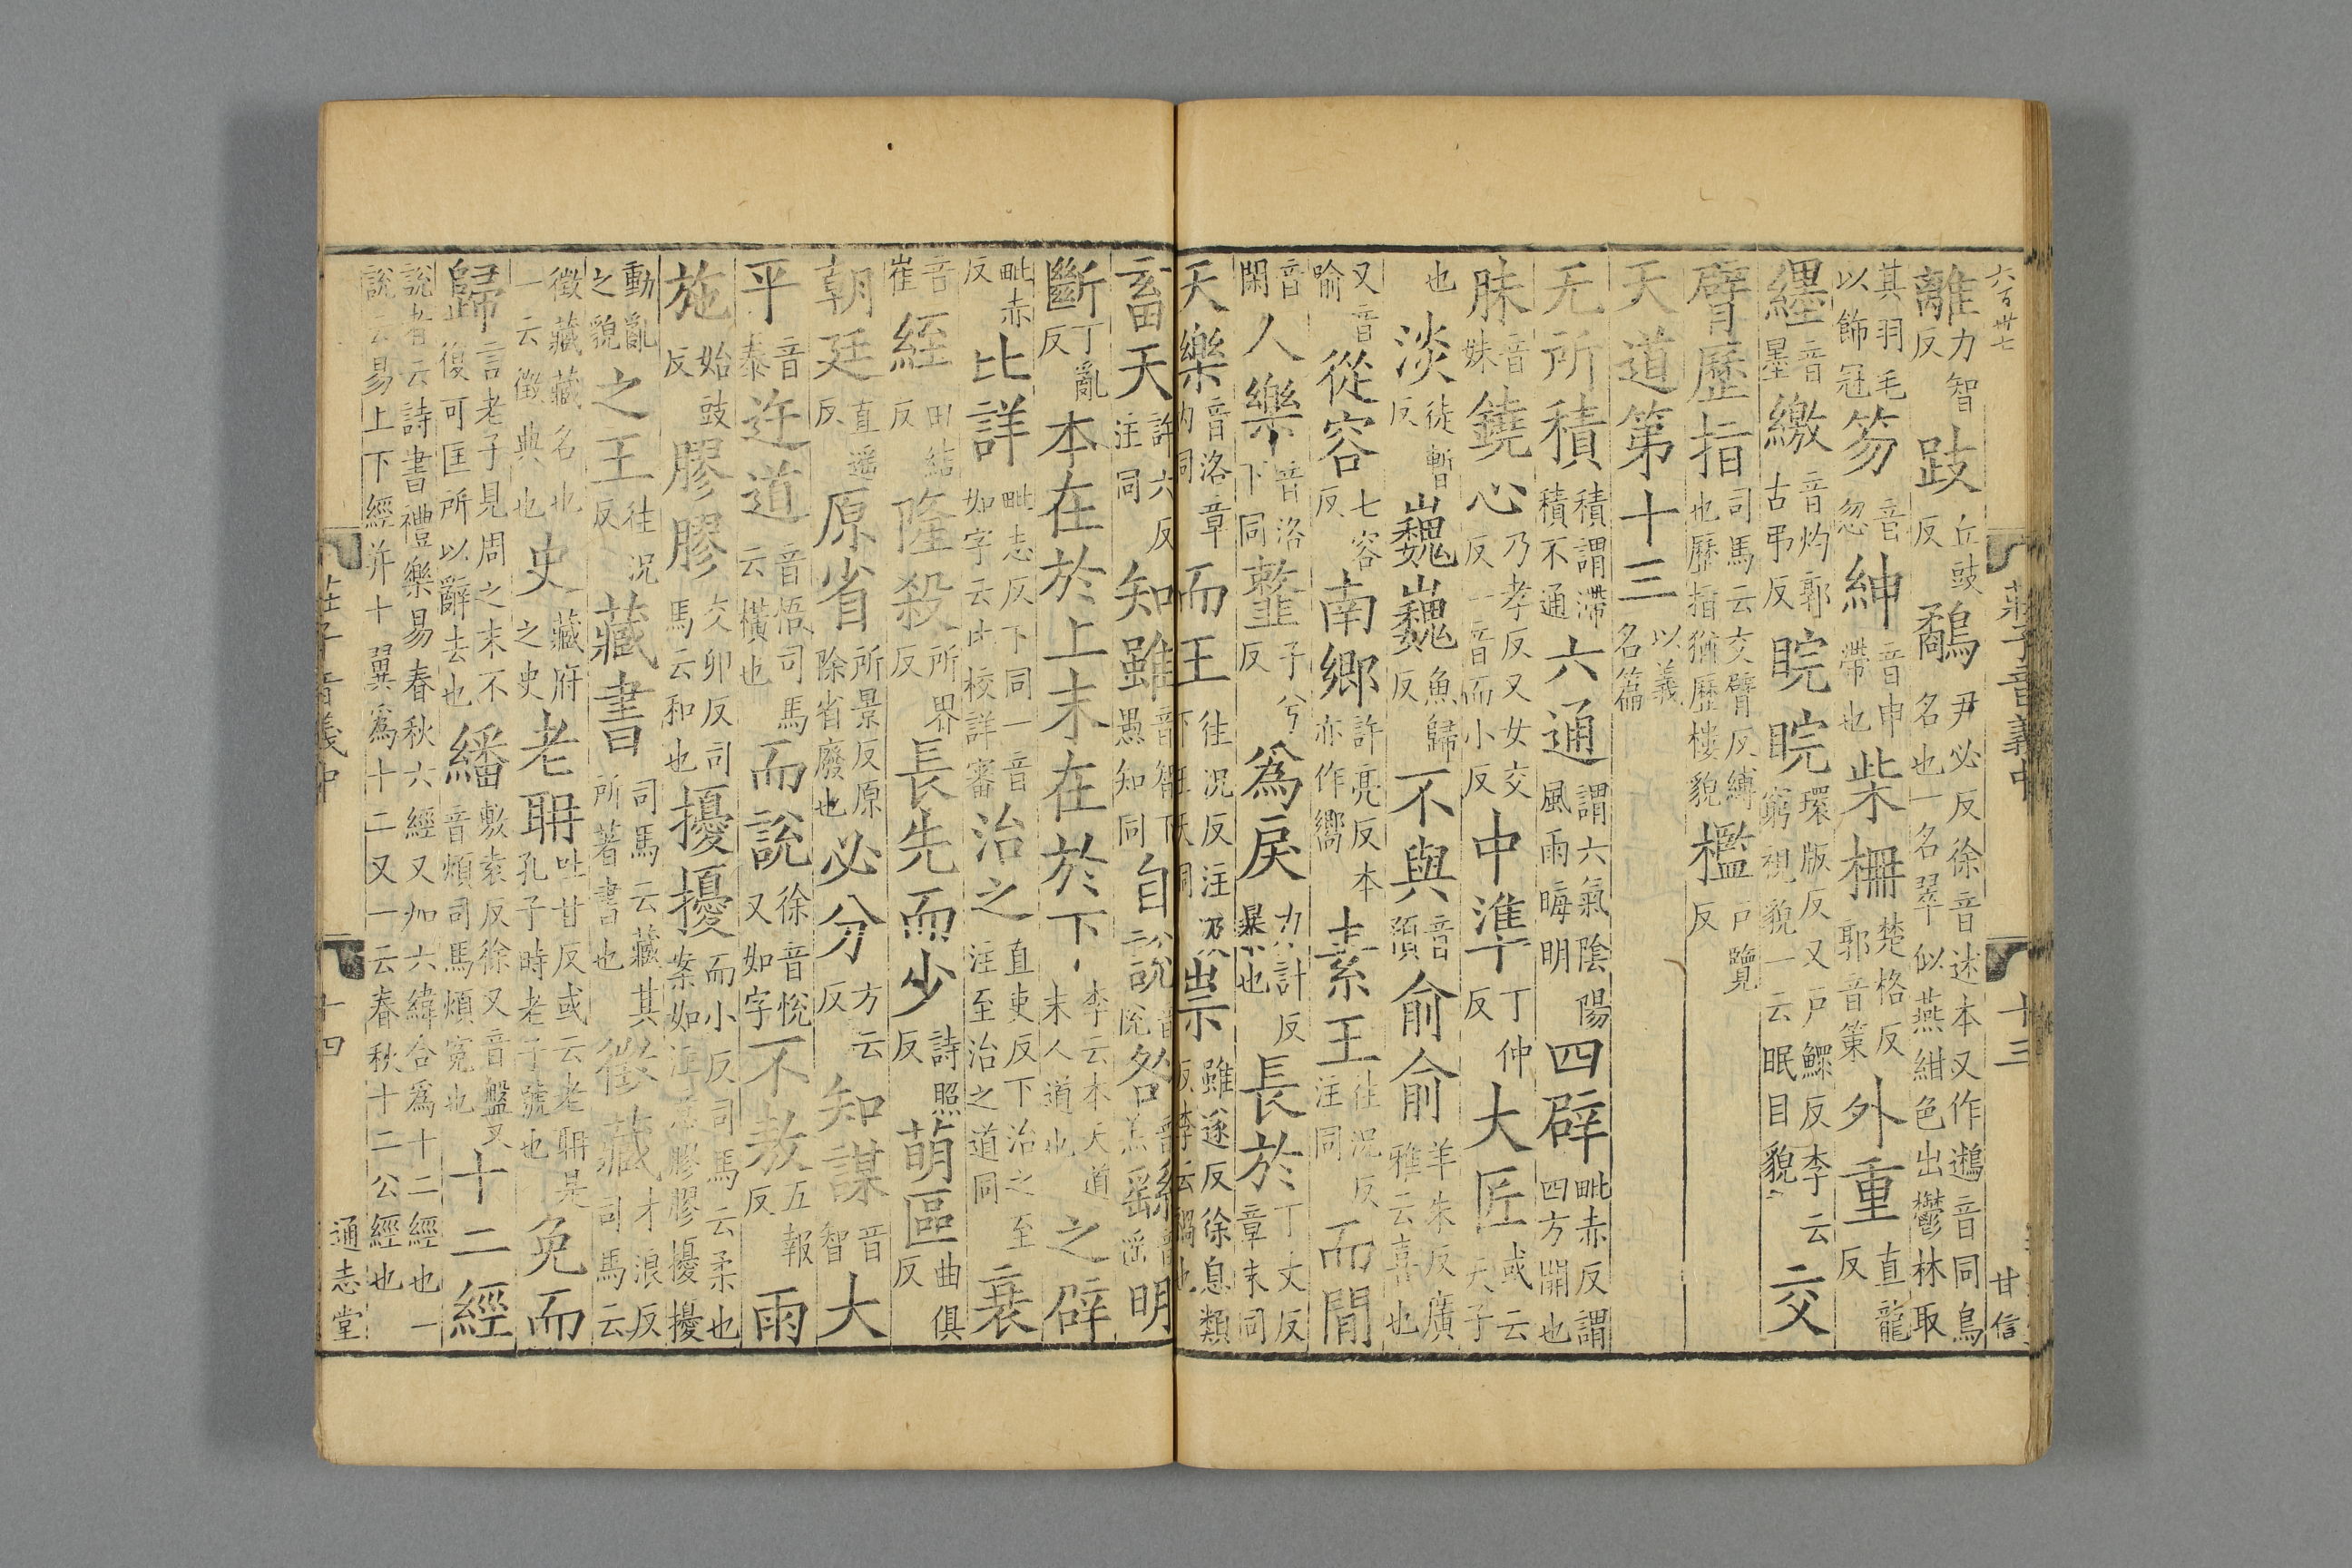 六百卅七
莊子音義中 十三 甘信
離力智反 跂丘豉反 鷸尹必反徐音述本又作鷸音同鳥名也一名翠似燕紺色出鬱林取
其羽毛以飾冠 笏音忽 紳音申帶也 柴柵楚格反郭音策 外重直龍反
纆音墨 繳音灼郭古弔反 睆睆環版反又戶鰥反李云窮視貌一云眠目貌 交
臂歷指司馬云交臂反縛也歷指猶歷樓貌 檻戶覽反
天道第十三以義名篇
无所積積謂滯積不通 六通謂六氣陰陽風雨晦明 四辟毗赤反謂四方開也
昧音妹 鐃心乃孝反又女交反一音而小反 中準丁仲反 大匠或云天子
也 淡徒暫反 巍巍魚歸反 不與音預 俞俞羊朱反廣雅云喜也
又音喻 從容七容反 南鄉許亮反本亦作嚮 素王往況反注同 而閒
音閑 人樂音洛下同 韲子兮反 爲戾力計反暴也 長於丁丈反章末同
天樂音洛章內同 而王往況反注及下王天同 祟雖遂反徐息類反李云禍也
畜天許六反注同 知雖音智下愚知同 自說音悅 咎音羔 繇音謠 明
斷丁亂反 本在於上末在於下李云本天道末人道也 之辟
毗赤反 比詳毗志反下同一音如字云比校詳審 治之直吏反下治之至注至治之道同 衰
音崔 絰田結反 隆殺所界反 長先而少詩照反 萌區曲俱反
朝廷直遙反 原省所景反原除省廢也 必分方云反 知謀音智 大
平音泰 迕道音悟司馬云橫也 而說徐音悅又如字 不敖五報反 雨
施始豉反 膠膠交卯反司馬云和也 擾擾而小反司馬云柔也案如注意膠膠擾擾
動亂之貌 之王往況反 藏書司馬云藏其所著書也 徵藏才浪反司馬云
徵藏藏名也一云徵典也 史藏府之史 老聃吐甘反或云老聃是孔子時老子號也 免而
歸言老子見周之末不復可匡所以辭去也 繙敷袁反徐又音盤又音煩司馬煩寃也 十二經
說者云詩書禮樂易春秋六經又加六緯合爲十二經也一說云易上下經并十翼爲十二又一云春秋十二公經也
莊子音義中 十四 通志堂